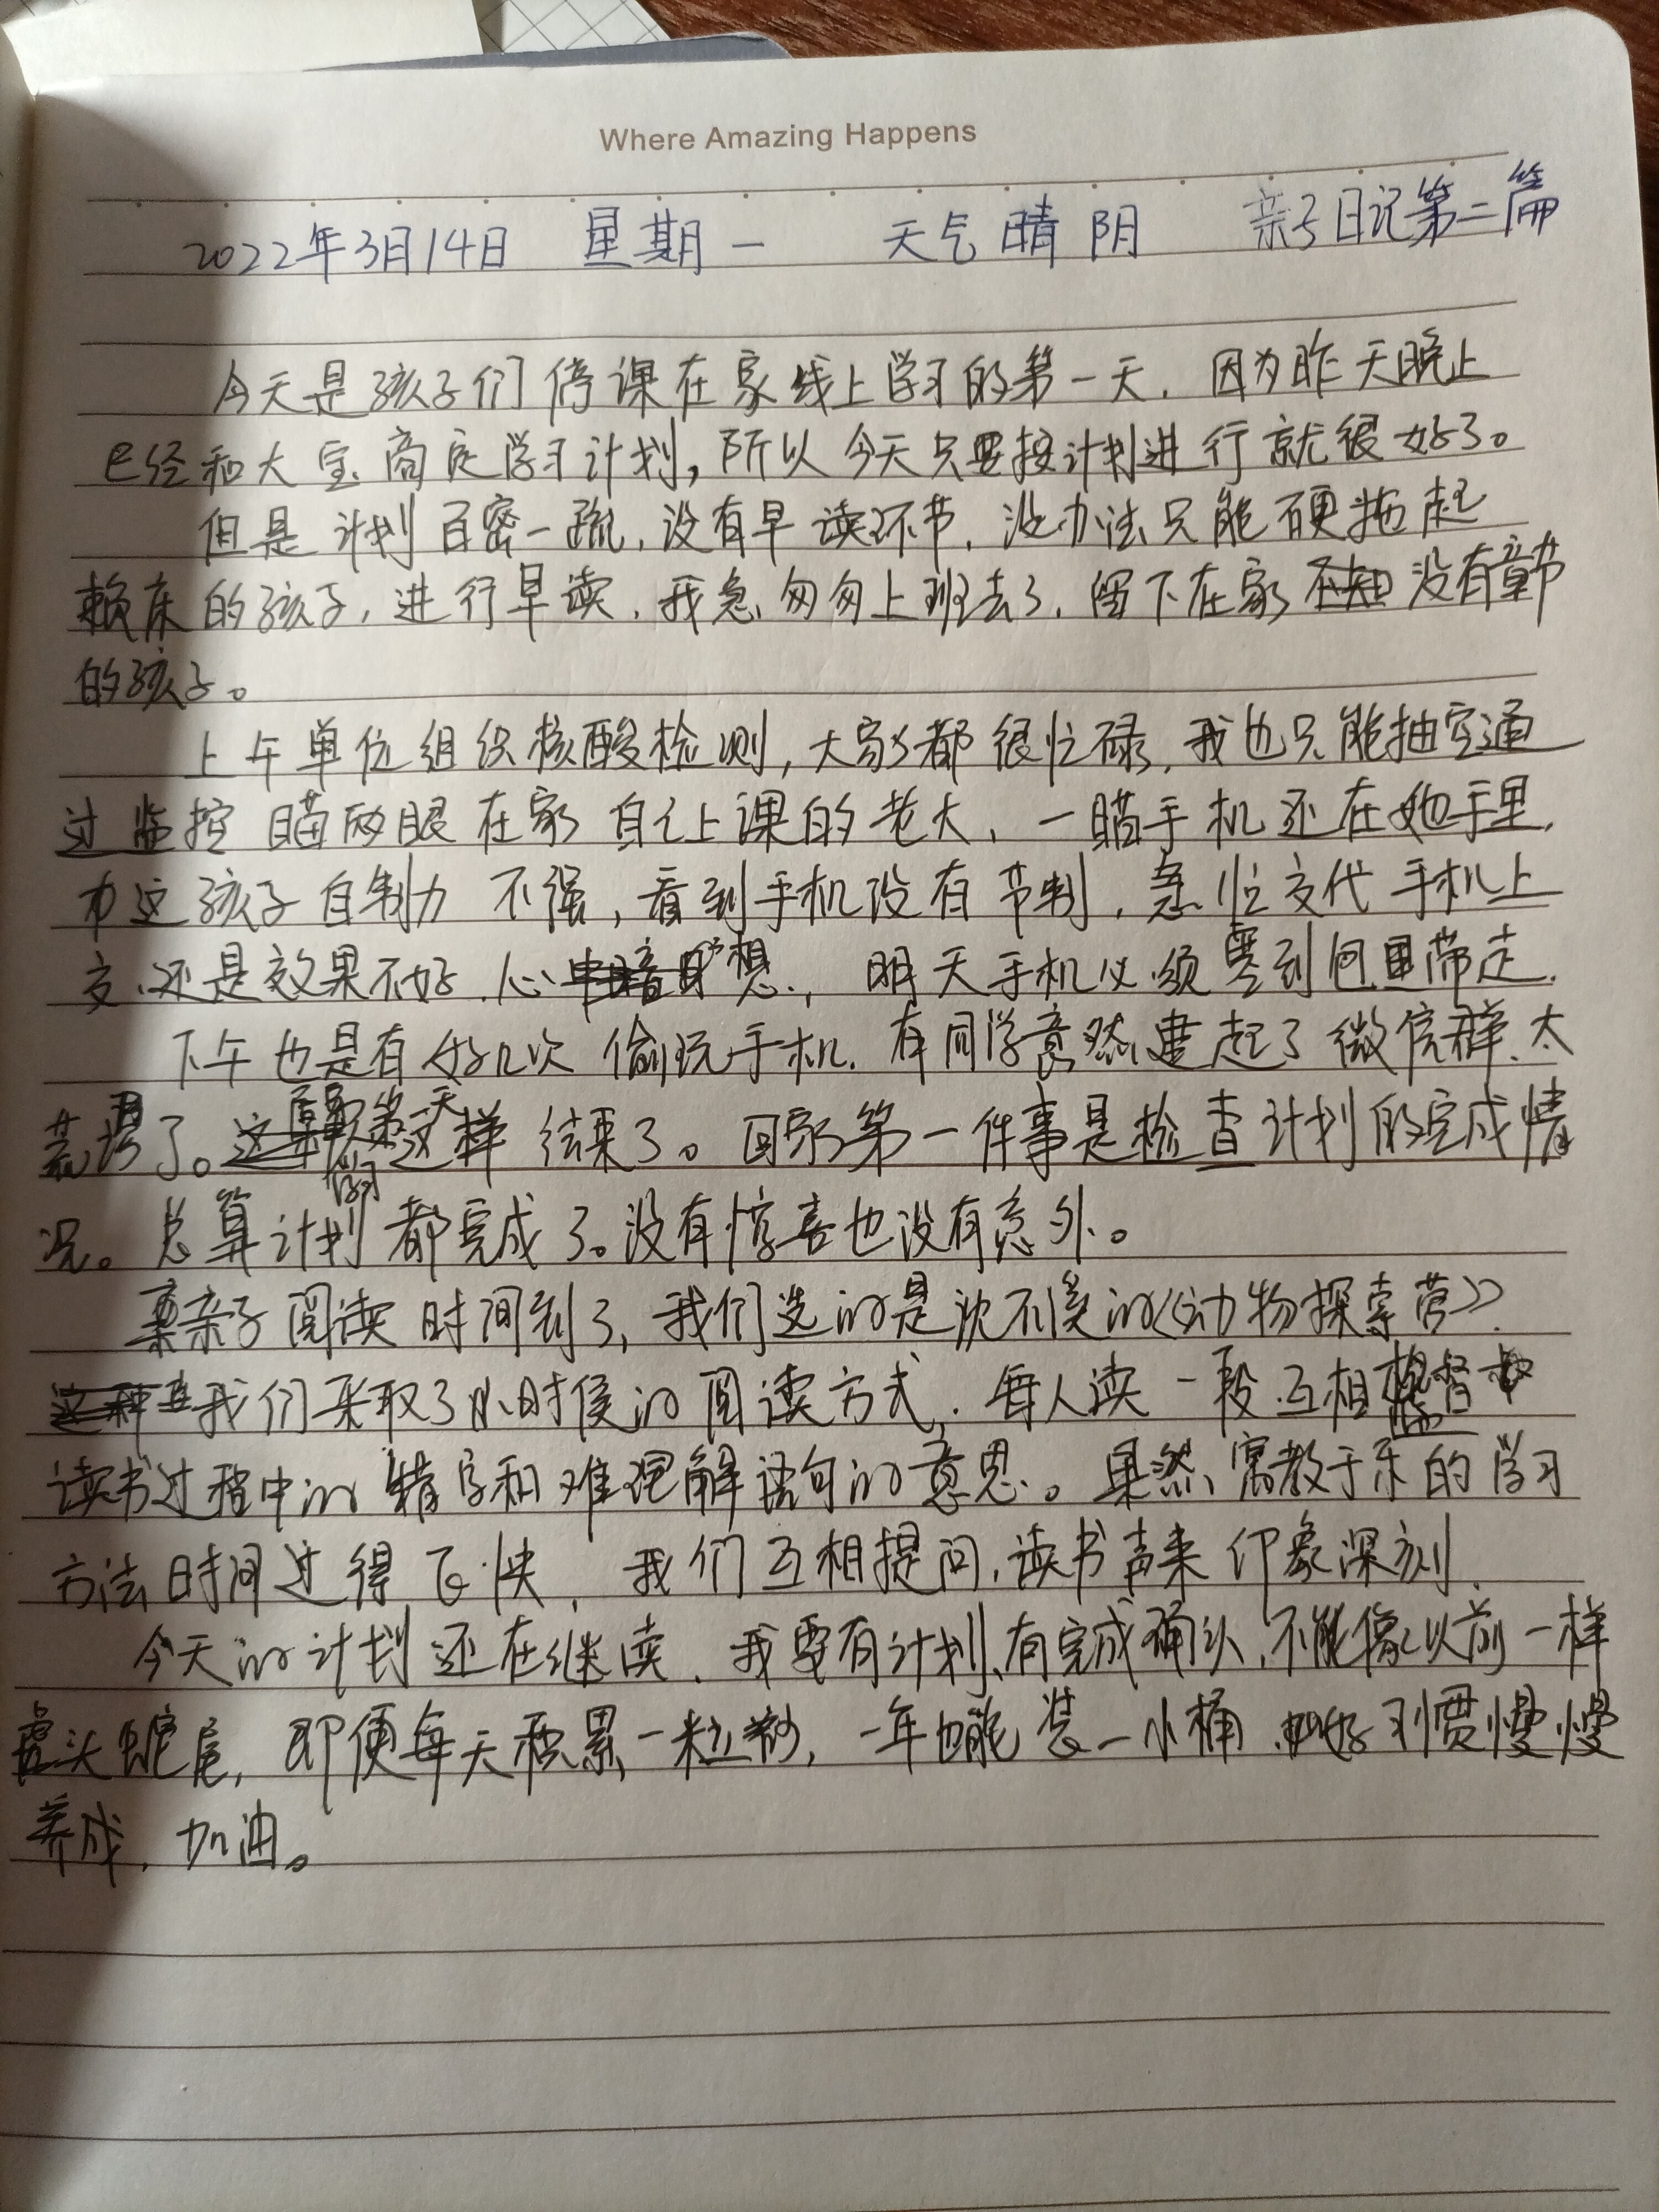 Where Amazing Happens
2022年3月14日 星期一 天气晴阴 亲子日记第二篇
今天是孩子们停课在家线上学习的第一天，因为昨天晚上
已经和大宝商定学习计划，所以今天只要按计划进行就很好了。
但是计划百密一疏，没有早读环节，没办法只能硬拖起
赖床的孩子，进行早读，我急匆匆上班去了，留下在家没有章节
的孩子。
上午单位组织核酸检测，大家都很忙碌，我也只能抽空通
过监控瞄两眼在家自己上课的老大，一瞄手机还在她手里，
这孩子自制力不强，看到手机没有节制，急忙交代手机上
交，还是效果不好，心想，明天手机必须要到包里带走，
下午也是有好几次偷玩手机，有同学竟然建起了微信群，太
荒唐了。这样结束了。回家第一件事是检查计划的完成情
况。总算计划都完成了。没有惊喜也没有意外。
亲子阅读时间到了，我们选的是沈不溪的《动物探索营》，
我们采取了小时候的阅读方式，每人读一段，互相监督
读书过程中的错字和难理解语句的意思。果然，寓教于乐的学习
方法时间过得飞快，我们互相提问，读书声来印象深刻，
今天的计划还在继续，我要有计划，有完成确认，不能像以前一样
虎头蛇尾，即便每天积累一粒沙，一年也能装一小桶，好习惯慢慢
养成，加油。